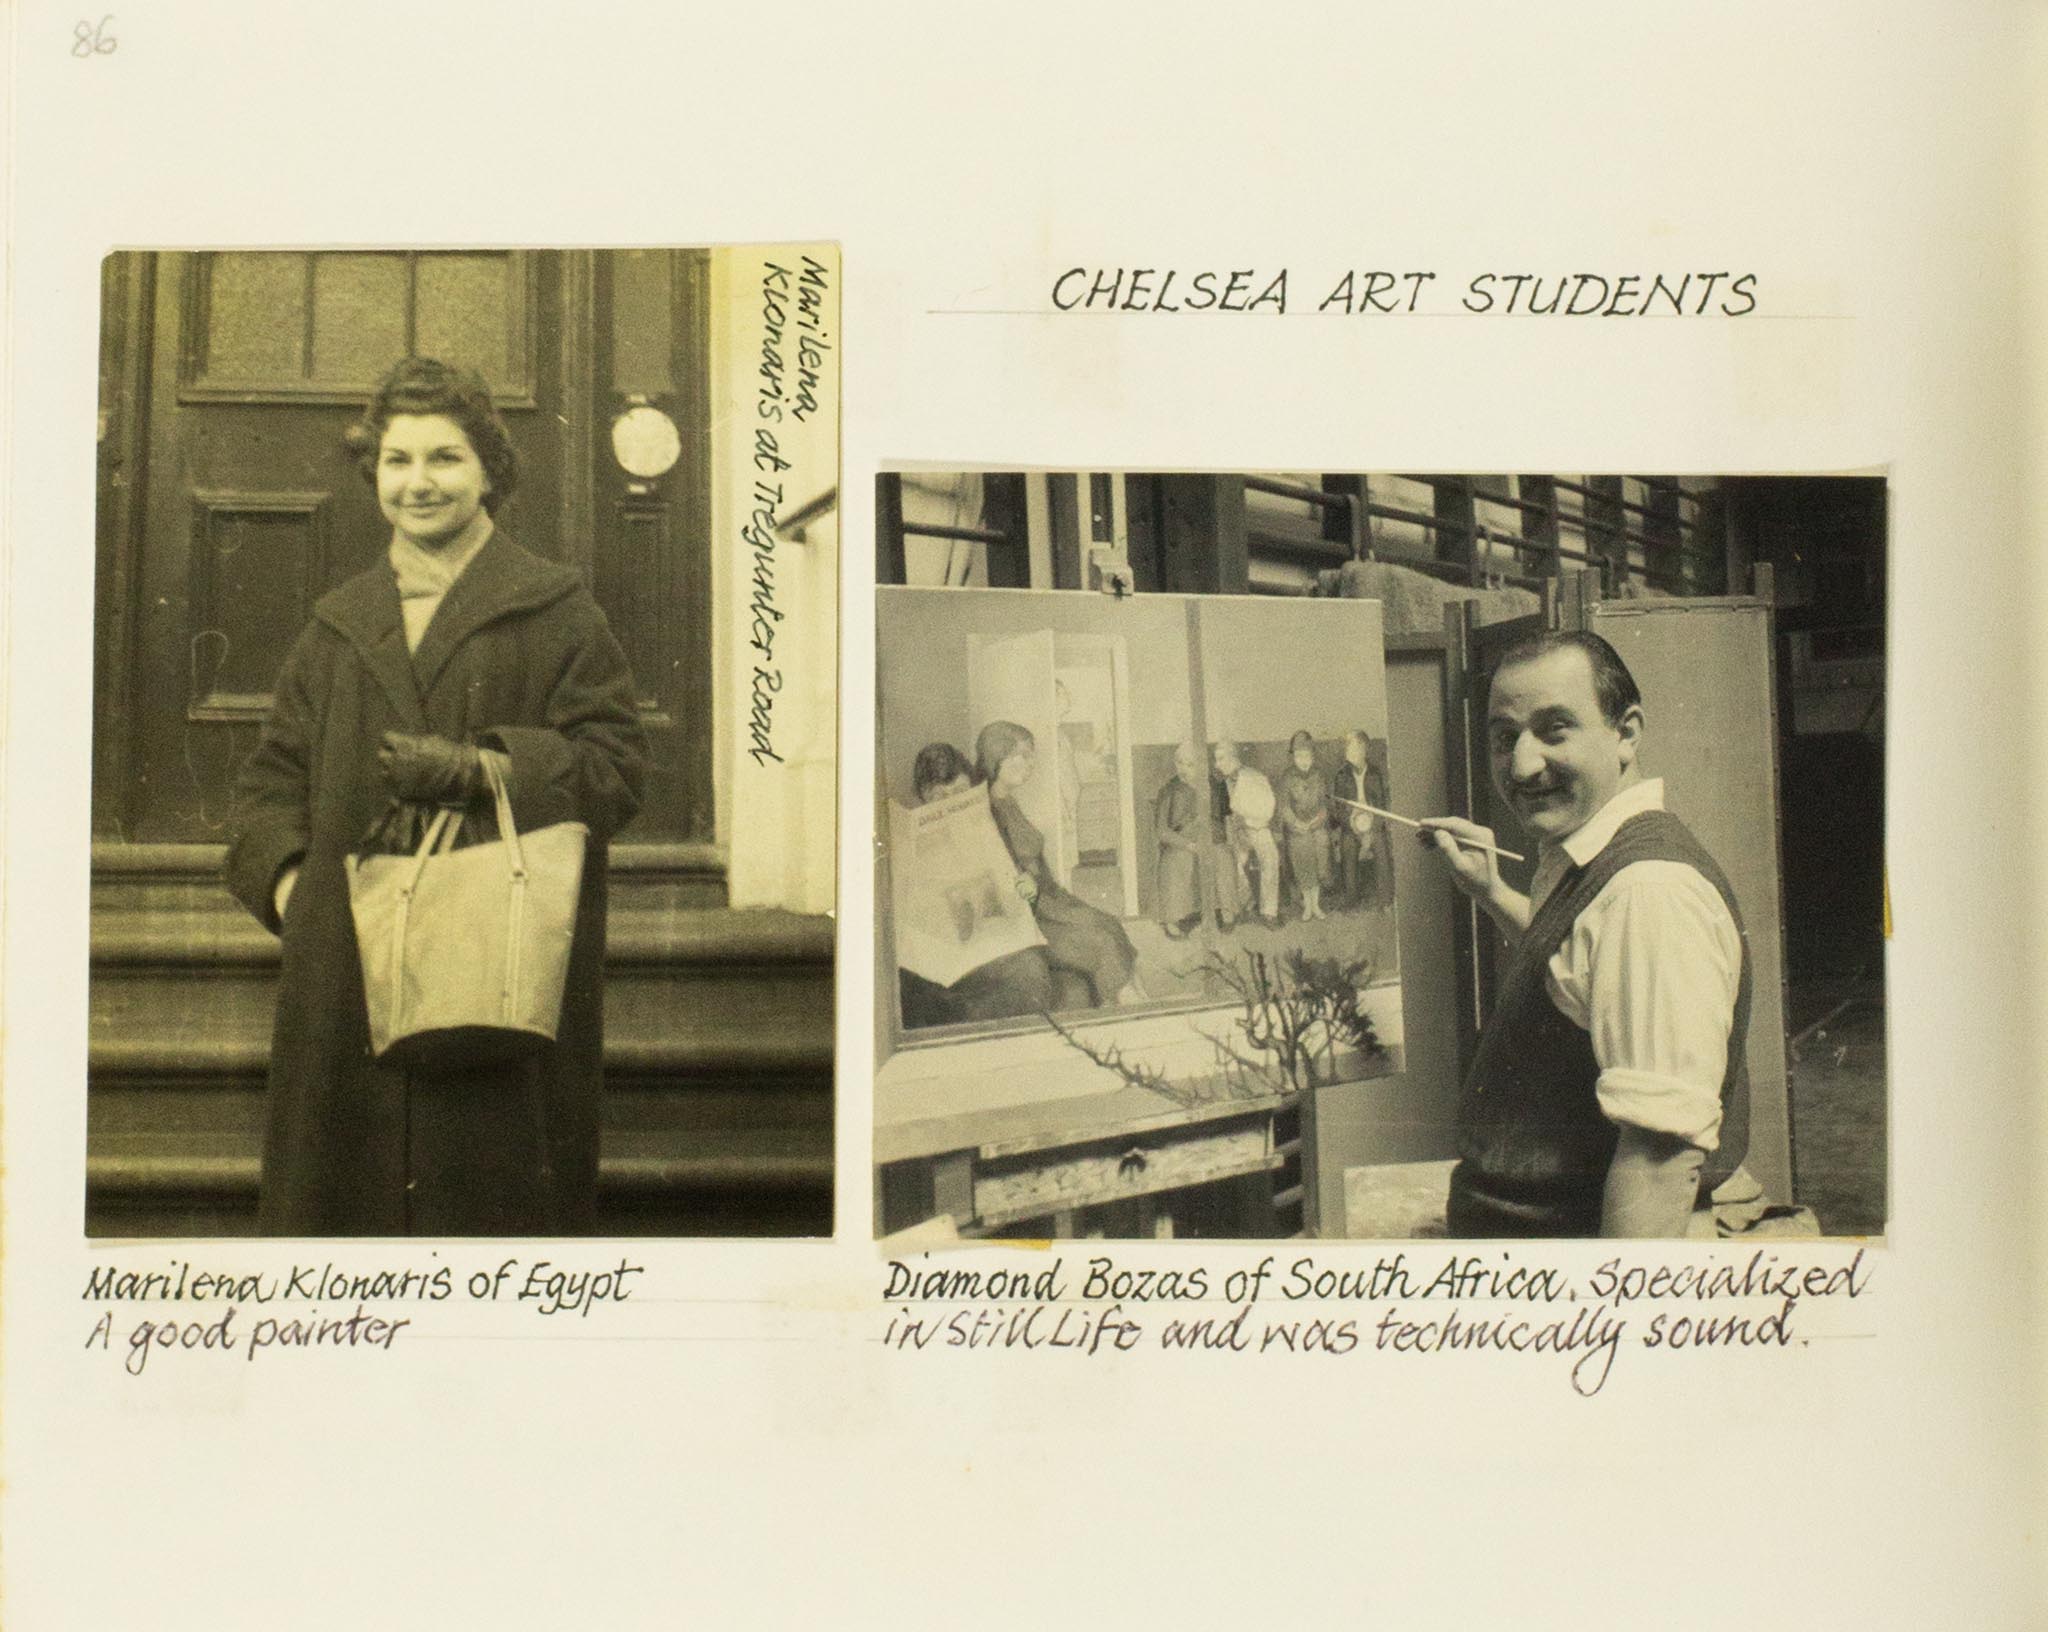 86
CHELSEA ART STUDENTS
Marilena
Klonaris at Tregunter Road
Marilena Klonaris of Egypt
A good painter
Diamond Bozas of South Africa. Specialized
in Still Life and was technically sound.